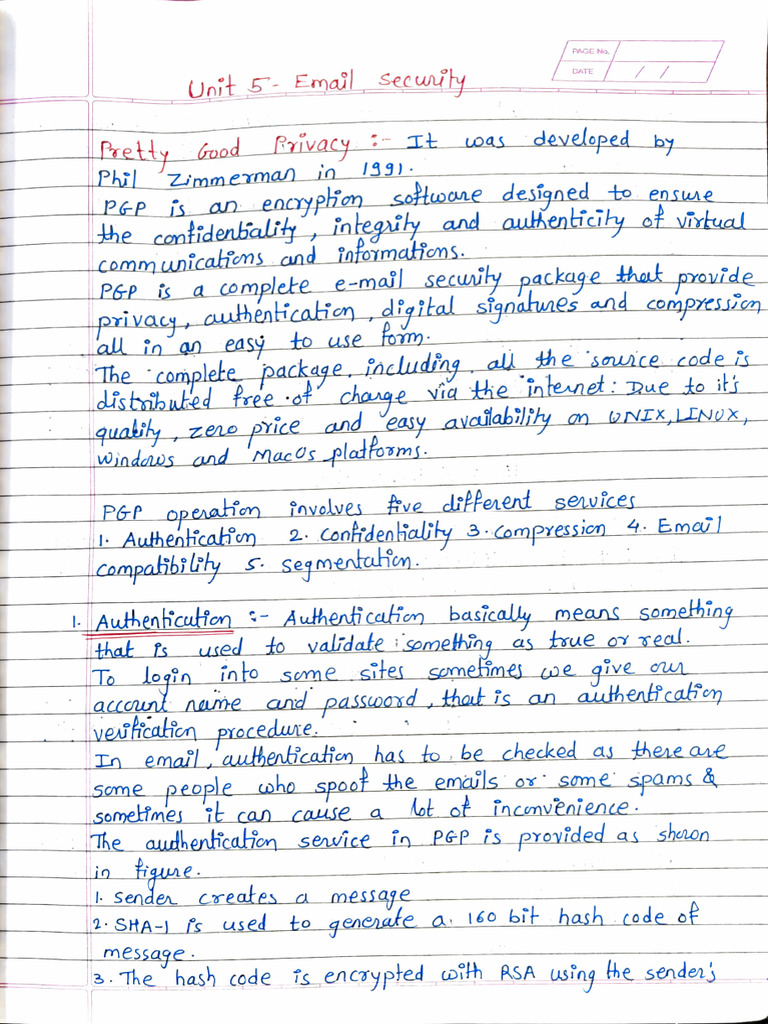 PAGE No.
DATE / /
Unit 5 - Email Security
Pretty Good Privacy :- It was developed by
Phil Zimmerman in 1991.
PGP is an encryption software designed to ensure
the confidentiality, integrity and authenticity of virtual
communications and informations.
PGP is a complete e-mail security package that provide
privacy, authentication, digital signatures and compression
all in an easy to use form.
The complete package, including all the source code is
distributed free of charge via the internet. Due to it's
quality, zero price and easy availability on UNIX, LINUX,
Windows and MacOs platforms.
PGP operation involves five different services
1. Authentication 2. Confidentiality 3. Compression 4. Email
compatibility 5. segmentation.
1. Authentication :- Authentication basically means something
that is used to validate something as true or real.
To login into some sites sometimes we give our
account name and password, that is an authentication
verification procedure.
In email, authentication has to be checked as there are
some people who spoof the emails or some spams &
sometimes it can cause a lot of inconvenience.
The audhentication service in PGP is provided as shown
in figure.
1. Sender creates a message
2. SHA-1 is used to generate a 160 bit hash code of
message.
3. The hash code is encrypted with RSA using the sender's